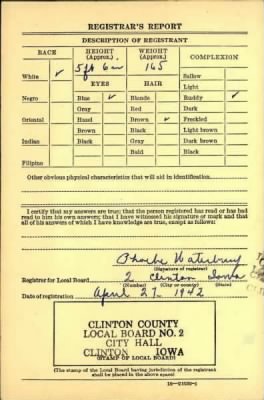 REGISTRAR'S REPORT
DESCRIPTION OF REGISTRANT
RACE HEIGHT (Approx.) WEIGHT (Approx.) COMPLEXION
White ✓ 5 ft 6 in 165 Sallow
Light
EYES HAIR
Negro Blue ✓ Blonde Ruddy ✓
Gray Red Dark
Oriental Hazel Brown ✓ Freckled
Brown Black Light brown
Indian Black Gray Dark brown
Bald Black
Filipino
Other obvious physical characteristics that will aid in identification.
I certify that my answers are true; that the person registered has read or has had
read to him his own answers; that I have witnessed his signature or mark and that
all of his answers of which I have knowledge are true, except as follows:
Phoebe Waterbury
(Signature of registrar)
Registrar for Local Board 2 Clinton Iowa
(Number) (City or county) (State)
Date of registration April 27 1942
CLINTON COUNTY
LOCAL BOARD NO. 2
CITY HALL
CLINTON IOWA
(STAMP OF LOCAL BOARD)
(The stamp of the Local Board having jurisdiction of the registrant
shall be placed in the above space)